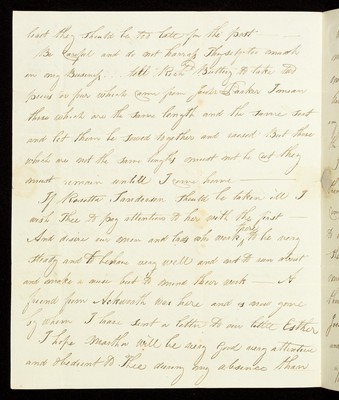 least they should be too late for the post —
Be Carful and do not harrass Thyself after much
on my Business . . . tell Rich^d Buttrey to take two
pieces or pair which came from Tucker I mean
those which are the same length and the same sort
and let them be sewed together and raised But those
which are not the same lengths must not be cut they
must remain untill I come home —
If Rosetta Sanderson should be taken ill I
wish Thee to pay attention to her with the first —
And desire our men and lads who work there to be very
steady and to behave very well and not to run about
and make a noise but to mind their work — A
friend from Ackworth was here and is now gone
by whom I have sent a letter to our little Esther
I hope Martha will be very good very attentive
and obedient to Thee during my absence than